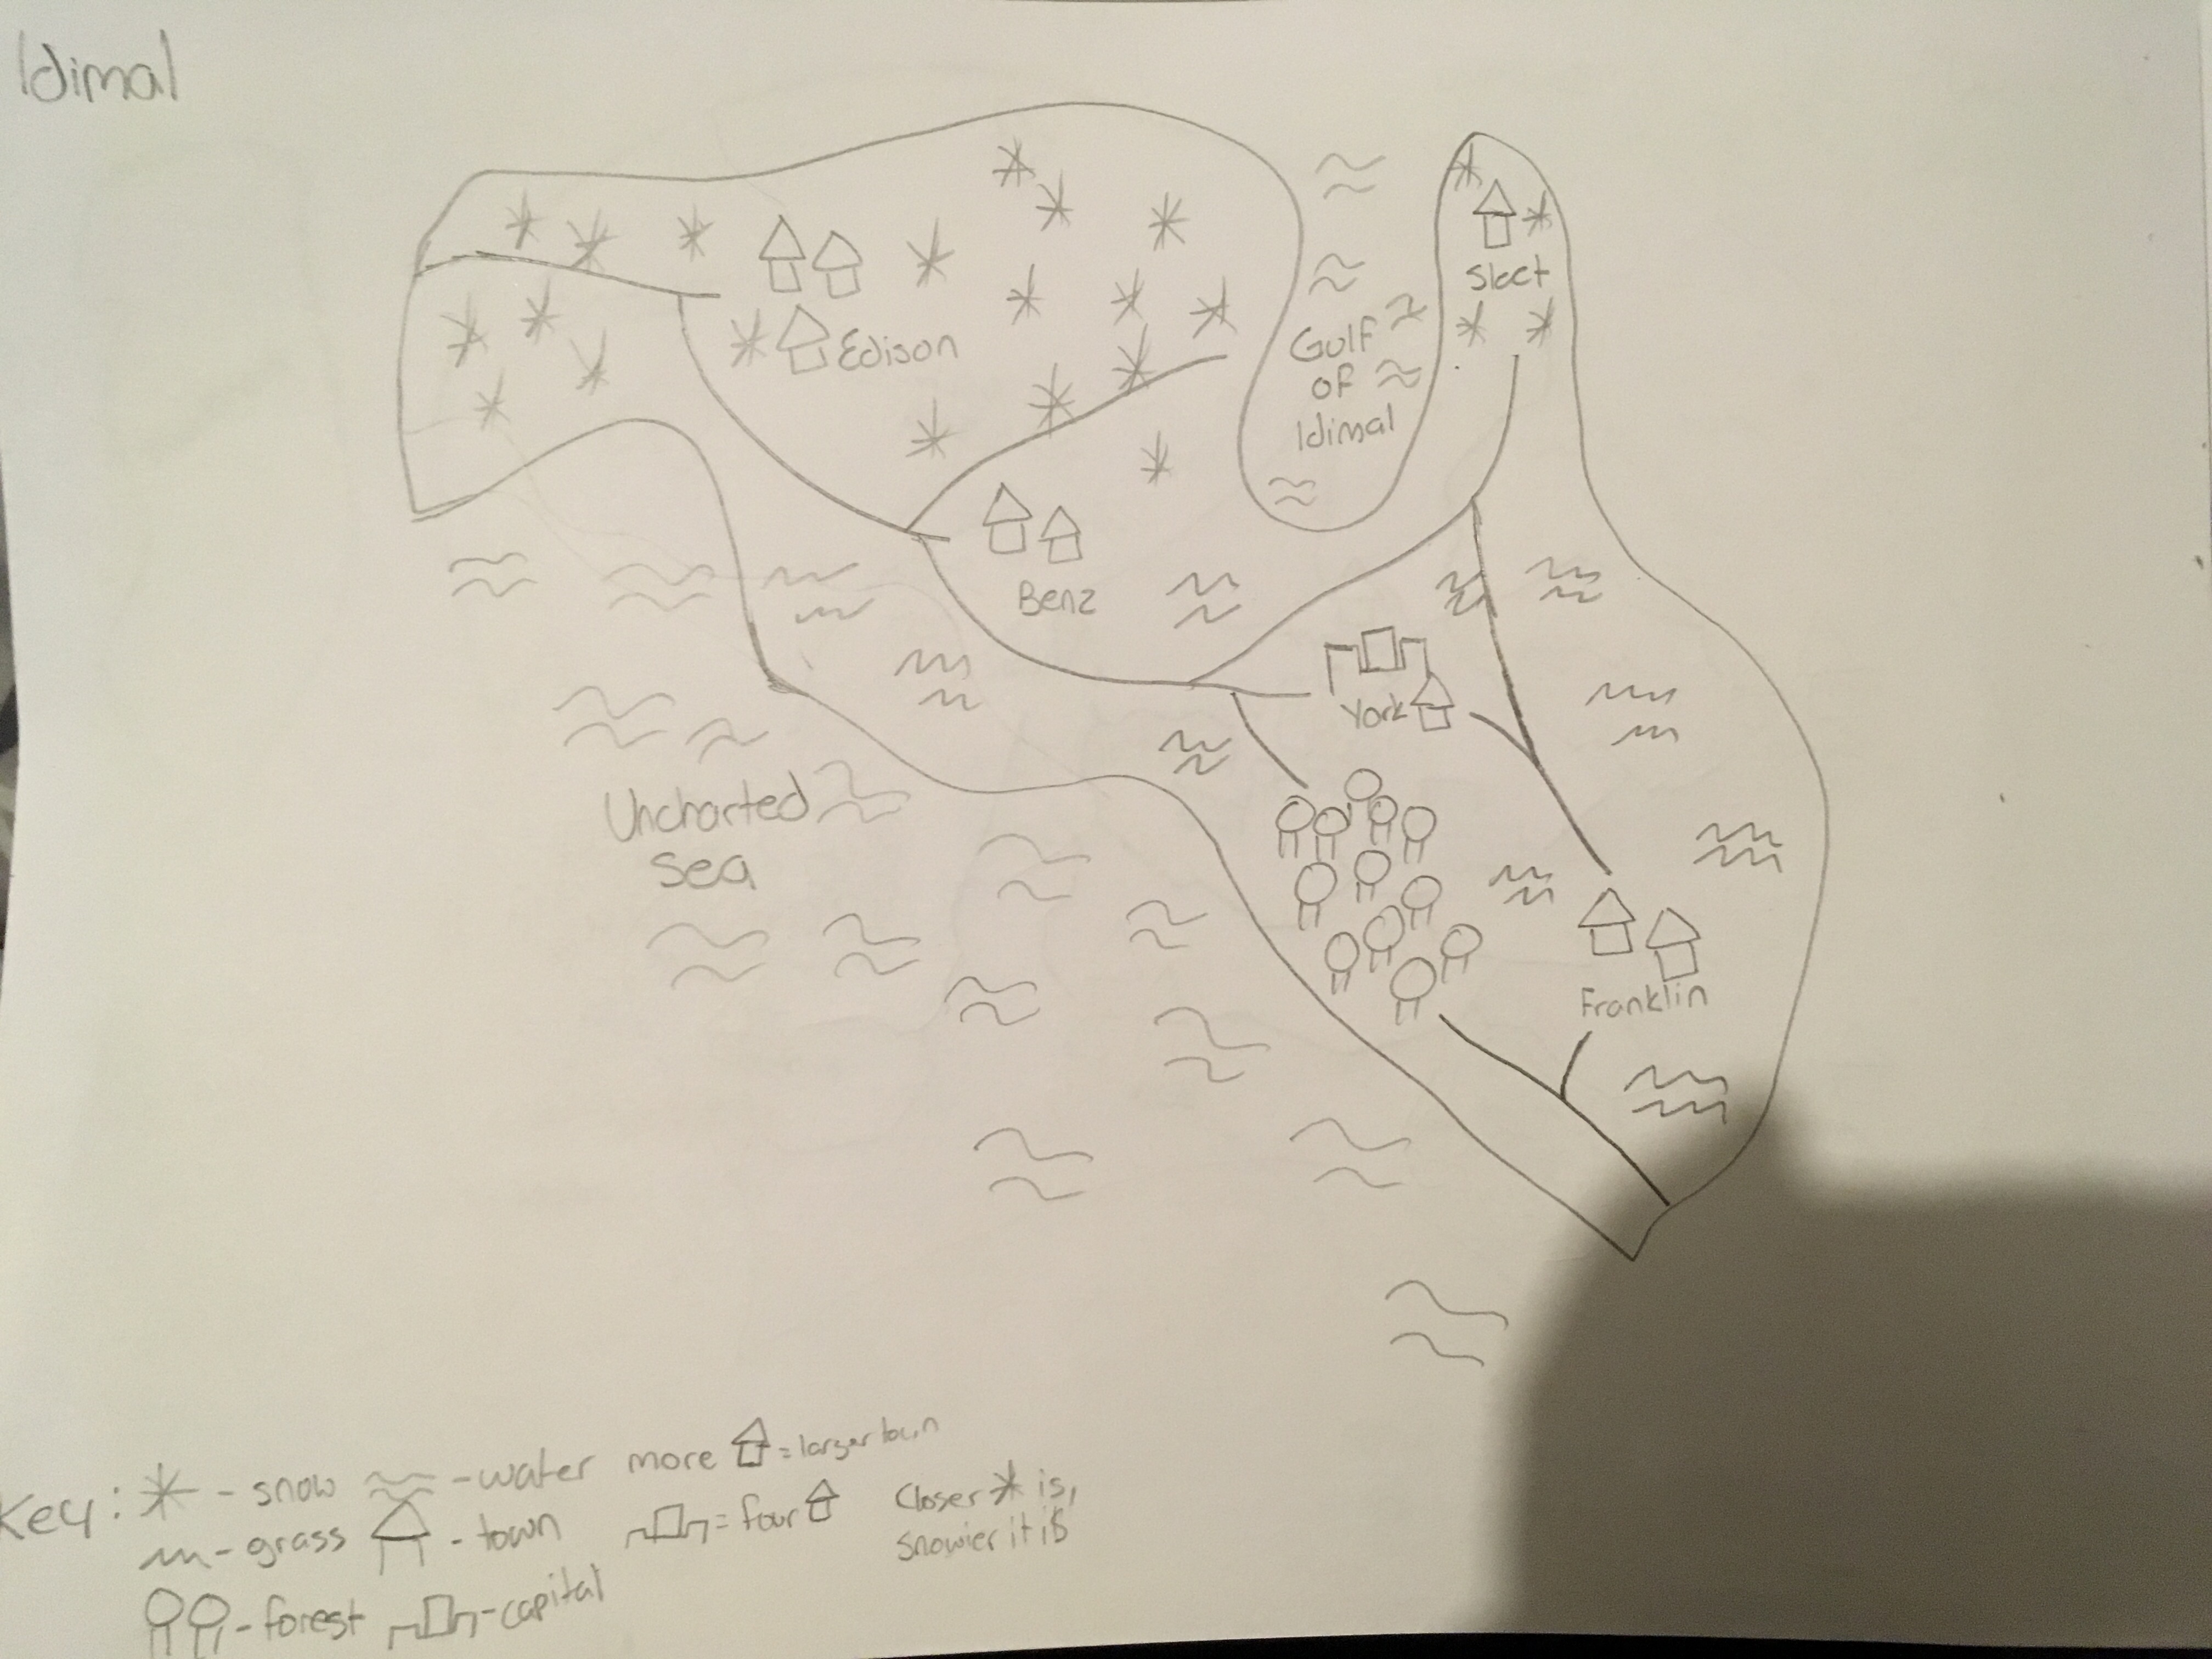 Idimal
Sleet
Edison
Gulf
of
Idimal
Benz
York
Uncharted
Sea
Franklin
Key: - snow - water more = larger town
- grass - town = four Closer is,
snowier it is
- forest - capital